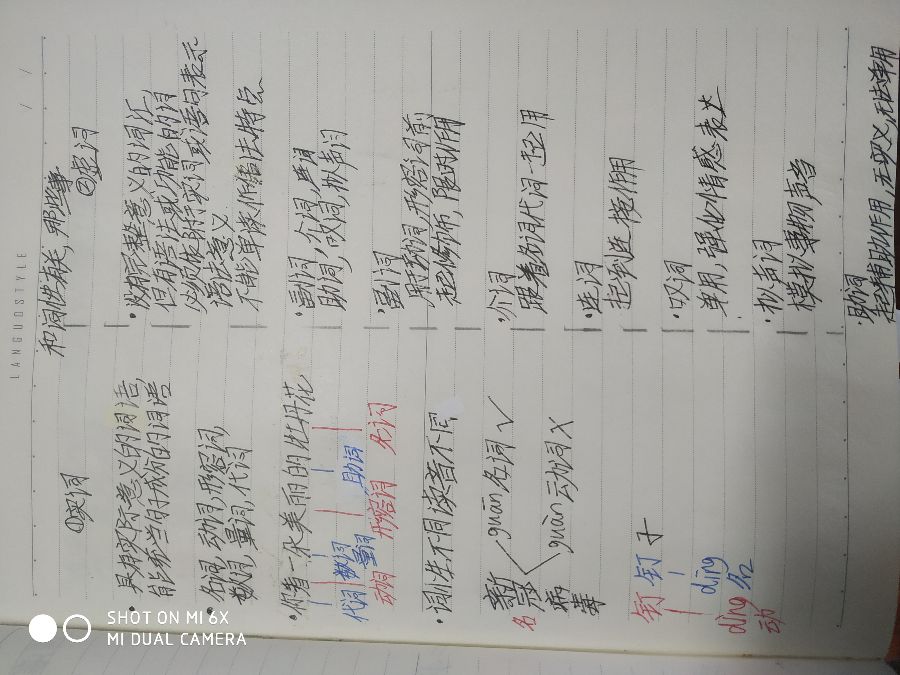 LANGUOSTYLE
/ /
和词性有关, 那些事
①实词
· 具有实际意义的词语,
能充当句子成份的词语
· 名词 动词, 形容词,
数词, 量词, 代词
· 你看一朵美丽的牡丹花
代词 数词 助词
动词 量词 形容词 名词
· 词性不同读音不同
新冠病毒
guān 名词 ✓
guàn 动词 ×
名
钉钉子
dìng dīng
动 名
②虚词
· 没有完整意义的词汇,
但有语法或功能的词
必须依附于实词或语句表示
语法意义
不能单独作语法特点
· 副词, 介词, 连词
助词, 叹词, 拟声词
· 副词
用在动词, 形容词前
起到修饰, 限制作用
· 介词
跟着名词代词一起用
· 连词
起到连接作用
· 叹词
单用, 强烈情感表达
· 拟声词
模拟事物, 声音
· 助词
起辅助作用, 无实义, 无法单用
SHOT ON MI 6X
MI DUAL CAMERA